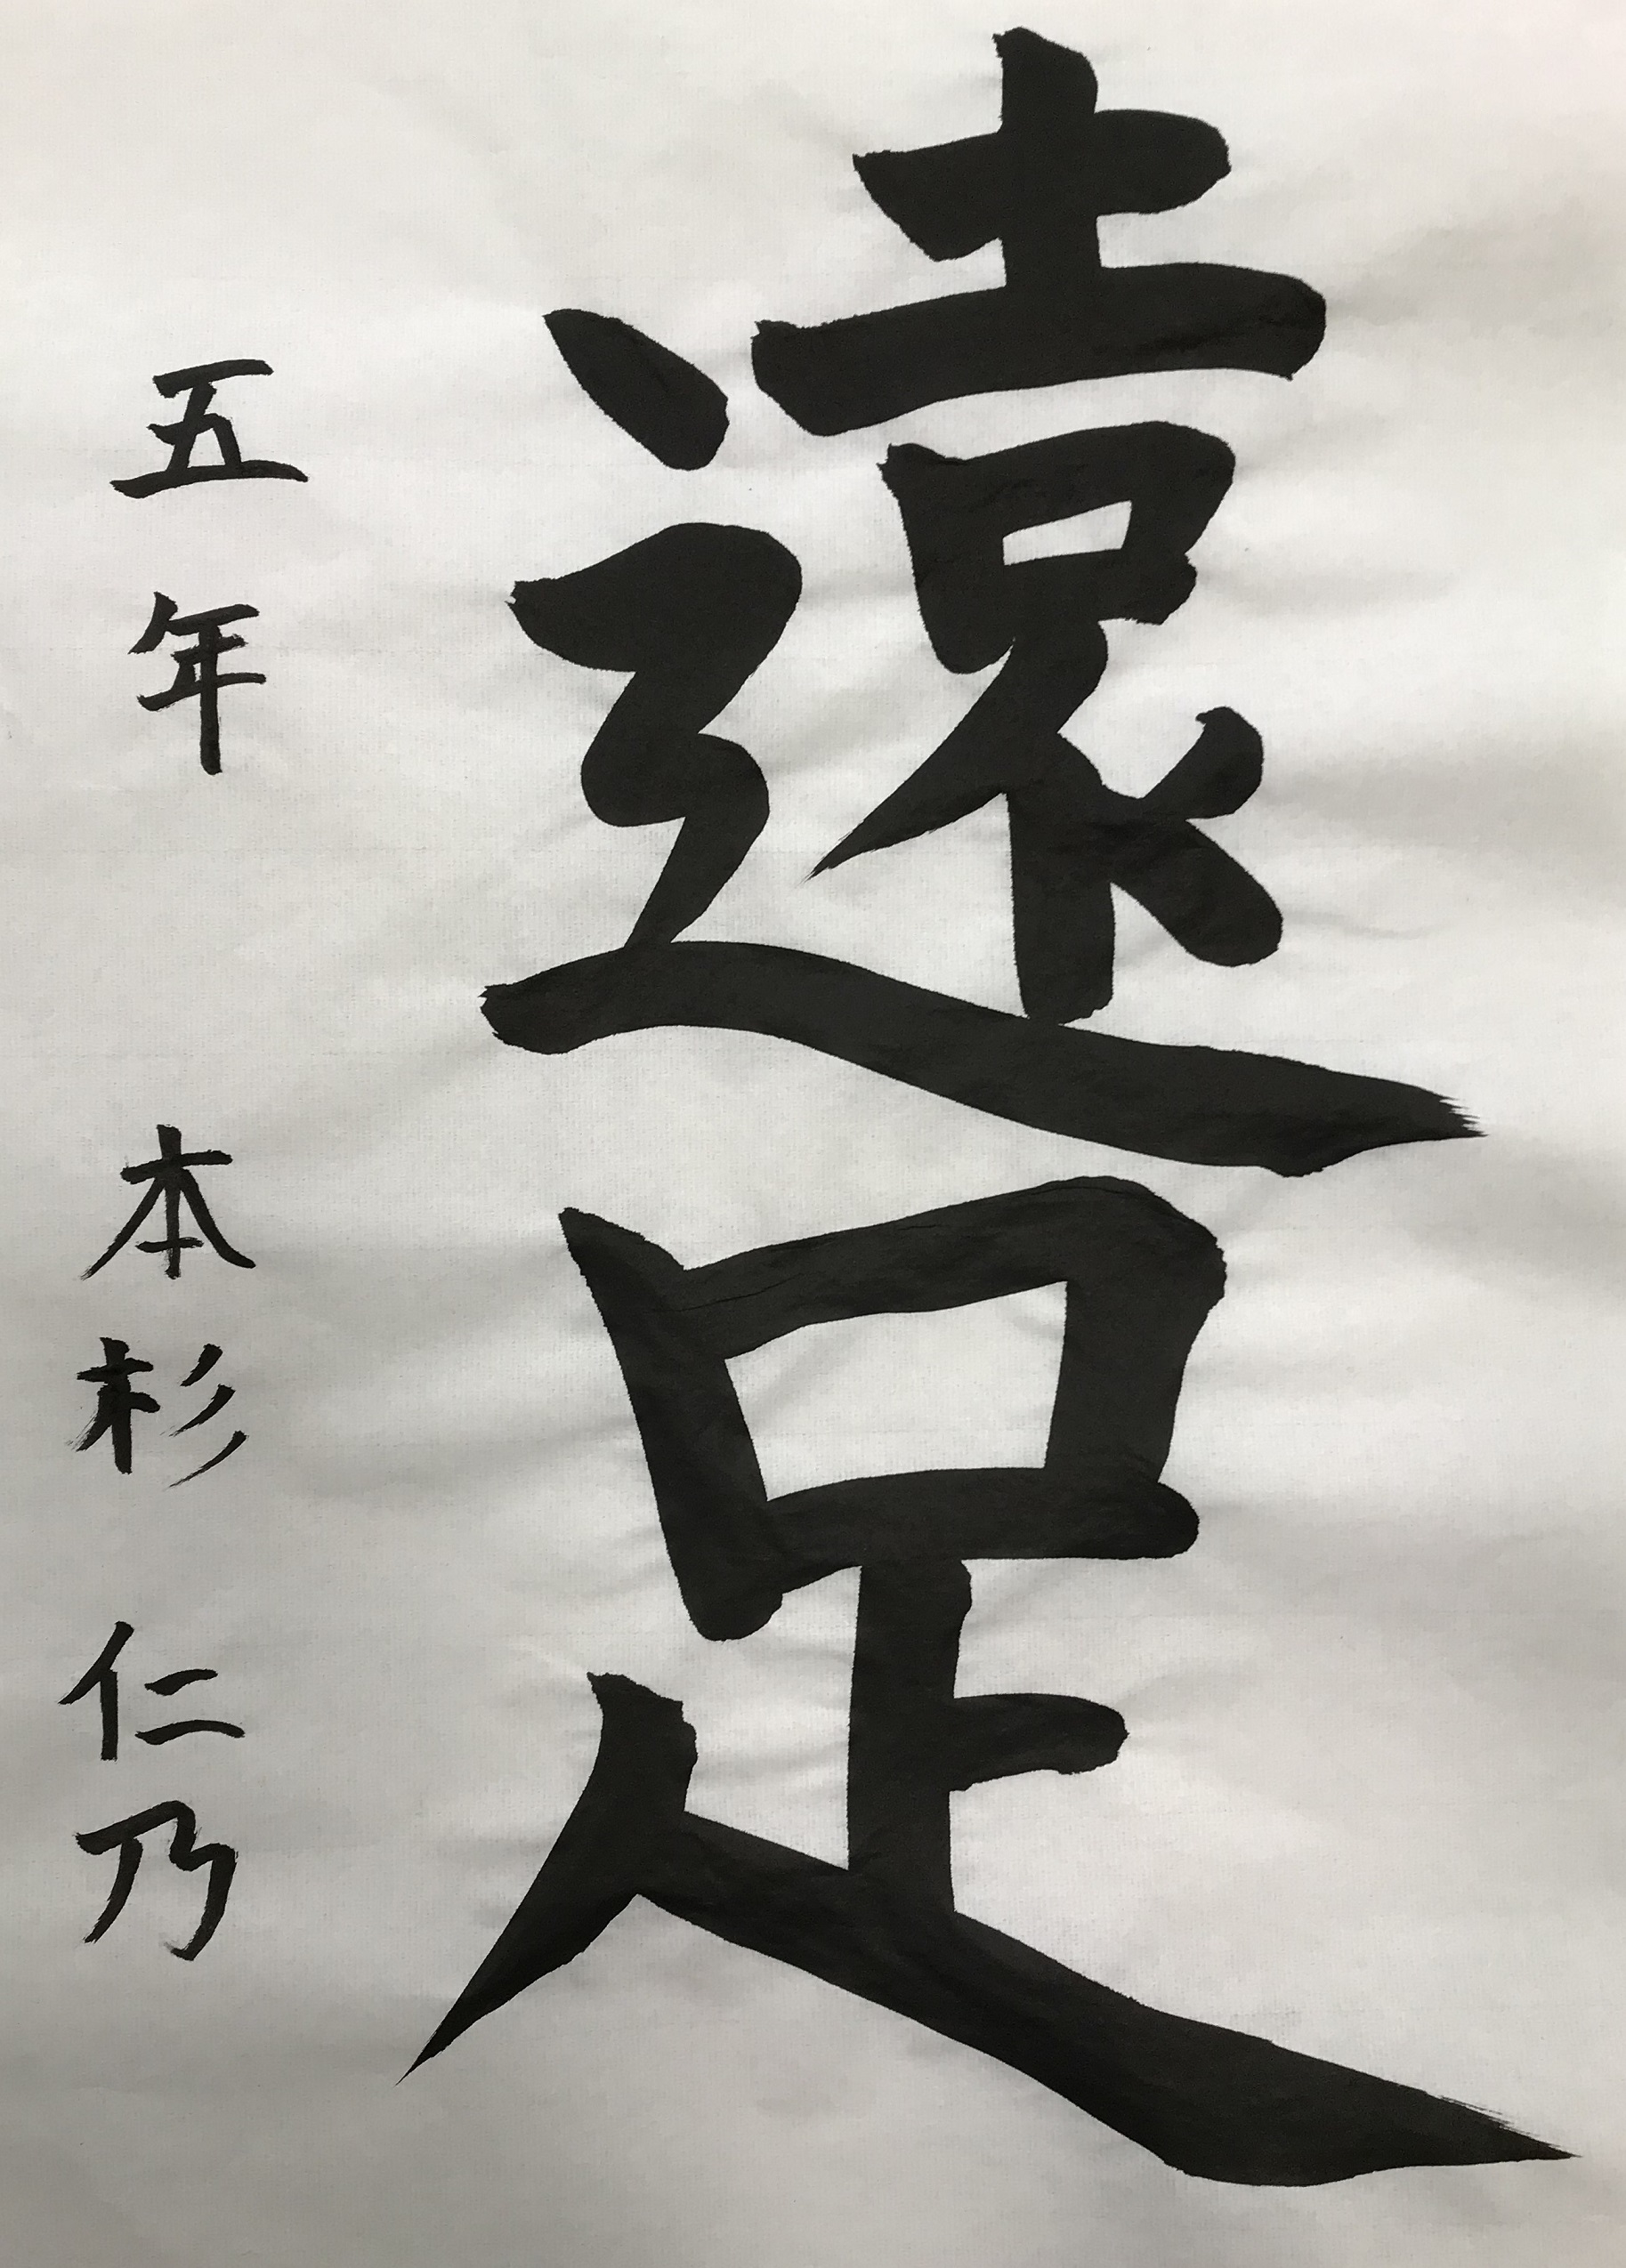 遠足
五年 本杉 仁乃